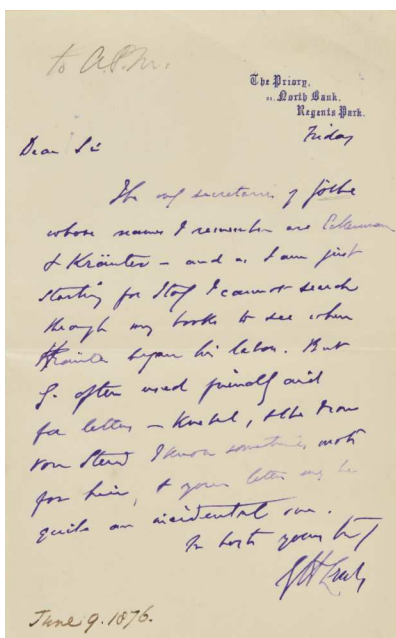 to A.S.M.
The Priory,
21. North Bank,
Regents Park.
Friday
Dear Sir
The only secretaries of Göthe
whose names I remember are Eckerman
& Kräuter – and as I am just
starting for Italy I cannot search
through my books to see when
Kräuter began his labor. But
G. often used friendly aid
for letters – Knebel, & the Frau
von Stein I know sometimes wrote
for him, & your letter may be
quite an incidental one.
In haste yours truly
June 9. 1876.